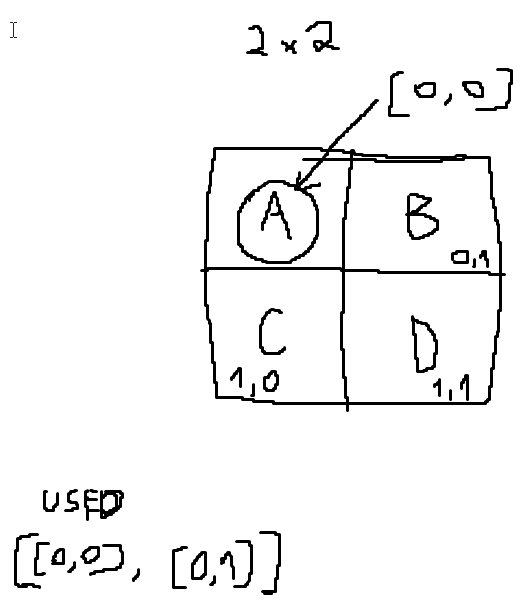 2 x 2
[0,0]
A B
0,1
C D
1,0 1,1
USED
[[0,0], [0,1]]